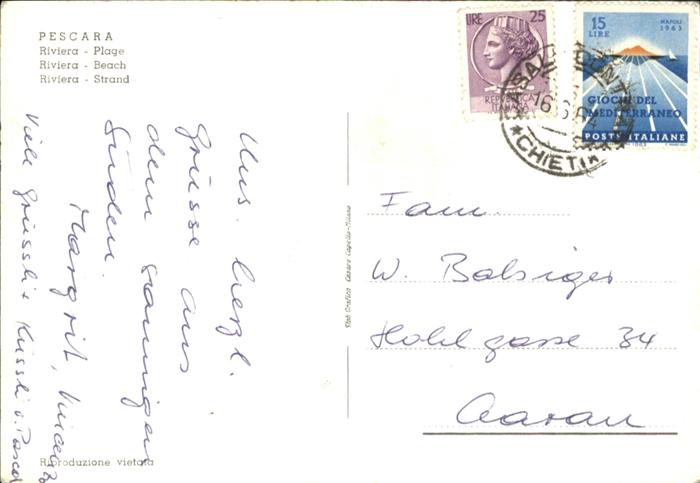 PESCARA
Riviera - Plage
Riviera - Beach
Riviera - Strand
Uns. herzl.
Grüsse aus
dem sonnigen
Süden.
Margrit, Vincenzo
Viele Grüssli + Küssli v. Pascal
Riproduzione vietata
Stab. Grafico Cesare Capello-Milano
LIRE 25
REPUBBLICA
ITALIANA
15
LIRE
NAPOLI
1963
GIOCHI DEL
MEDITERRANEO
POSTE ITALIANE
CHIETI
Fam.
W. Bolsiger
Hohlgasse 34
Aarau